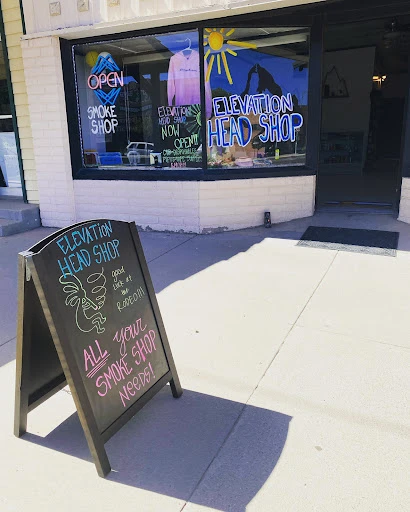 OPEN
SMOKE
SHOP
ELEVATION
HEAD SHOP
NOW
OPEN!
ELEVATION
HEAD SHOP
ELEVATION
HEAD SHOP
good
luck at
the
RODEO!!!
ALL your
SMOKE SHOP
NEEDS!